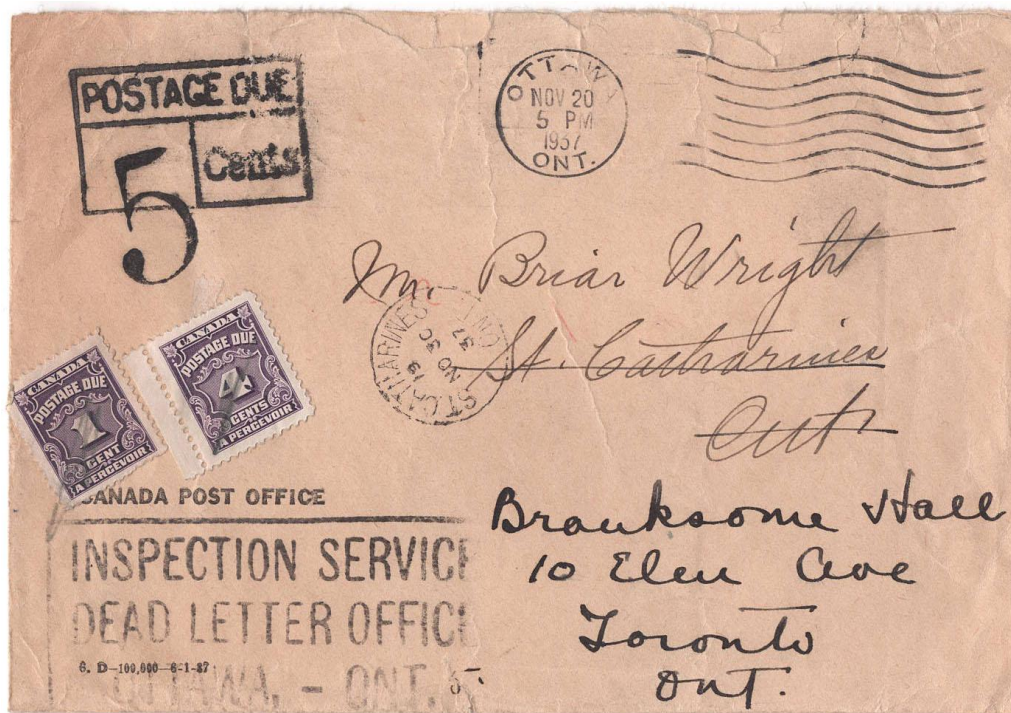 POSTAGE DUE
5 Cents
OTTAWA
NOV 20
5 PM
1937
ONT.
Mr. Briar Wright
St. Catharines
Ont
ST. CATHARINES ONT
NO 30
37
CANADA
POSTAGE DUE
1
CENT
À PERCEVOIR
CANADA
POSTAGE DUE
4
CENTS
À PERCEVOIR
CANADA POST OFFICE
INSPECTION SERVICE
DEAD LETTER OFFICE
OTTAWA, - ONT.
G. D-100,000-6-1-37
Branksome Hall
10 Elm Ave
Toronto
Ont.